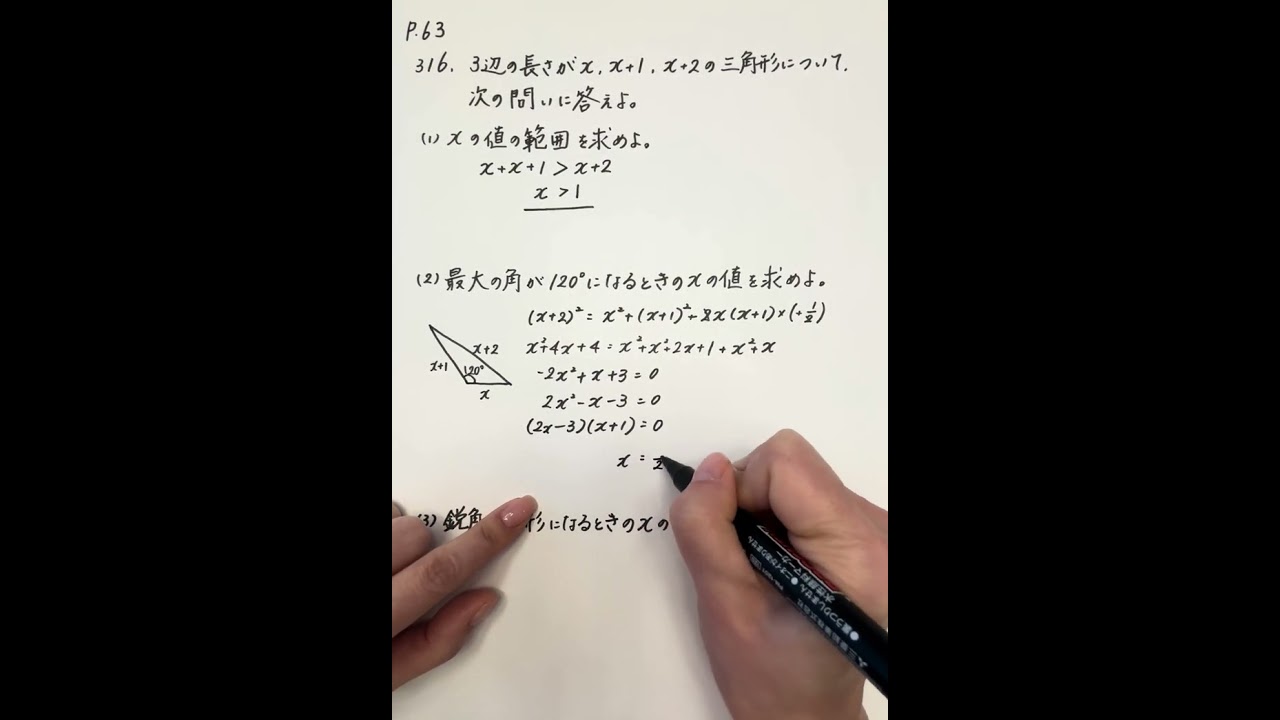 P.63
316. 3辺の長さがx, x+1, x+2の三角形について,
次の問いに答えよ。
(1) xの値の範囲を求めよ。
x+x+1>x+2
x>1
(2) 最大の角が120°になるときのxの値を求めよ。
(x+2)²=x²+(x+1)²-2x(x+1)×(-1/2)
x²+4x+4=x²+x²+2x+1+x²+x
-2x²+x+3=0
2x²-x-3=0
(2x-3)(x+1)=0
x+2
x+1
120°
x
x=
2
(3) 鋭角 形になるときのxの
水性顔料マーカー